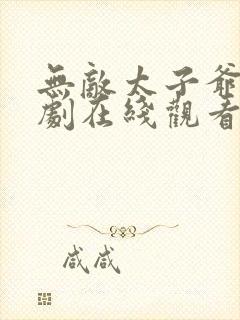 無敵太子爺
劇在綫觀看
咸咸